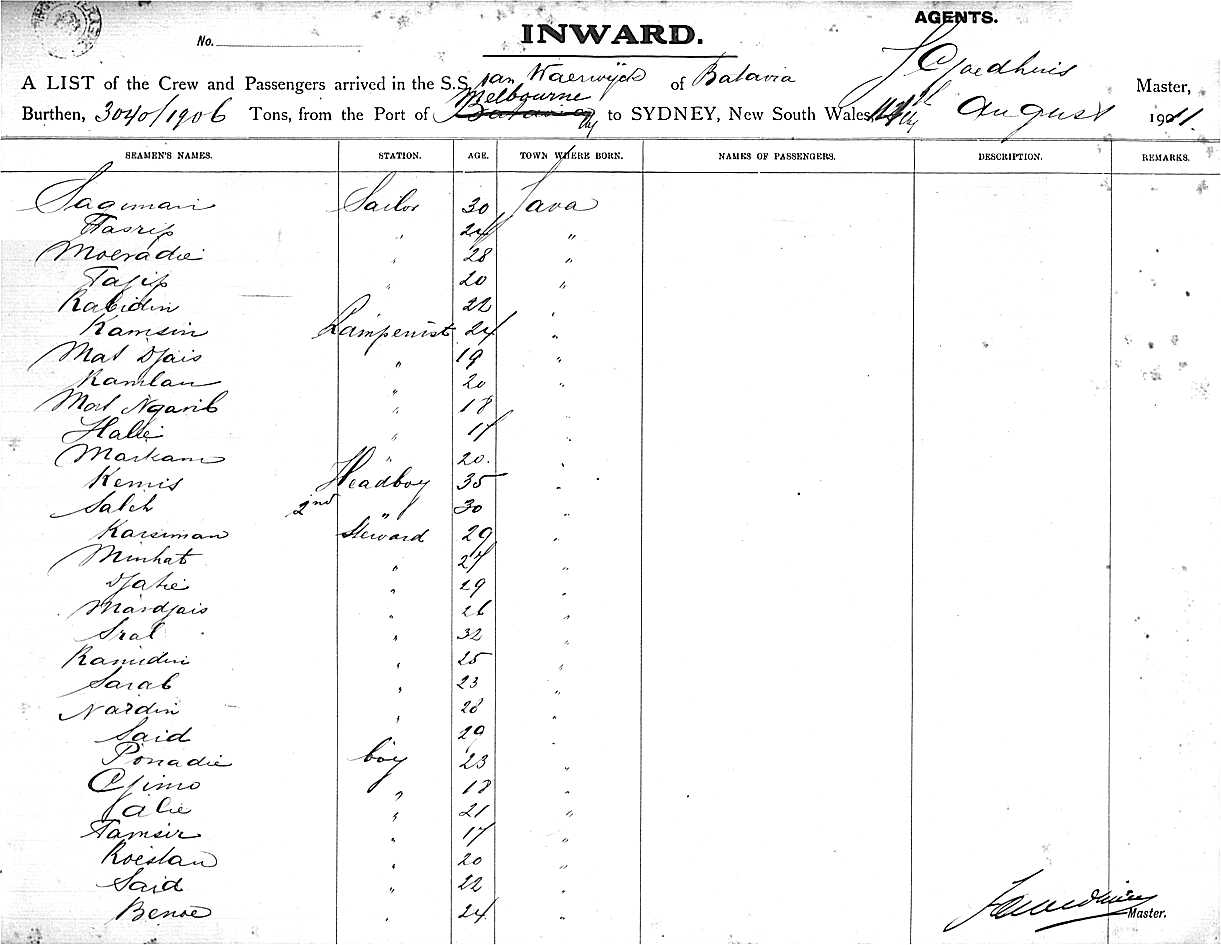 AGENTS.
No.
INWARD.
A LIST of the Crew and Passengers arrived in the S.S. van Waerwijck of Batavia J Goedhuis Master,
Burthen, 3040/1906 Tons, from the Port of Melbourne to SYDNEY, New South Wales, August 1911.
SEAMEN'S NAMES. STATION. AGE. TOWN WHERE BORN. NAMES OF PASSENGERS. DESCRIPTION. REMARKS.
Sageman Sailor 30 Java
Tasrip " 24 "
Moeradie " 28 "
Tasip " 20 "
Kabidin 22 "
Kamsin Lampenist 24 "
Mat Djais " 19 "
Ramlan " 20 "
Mat Ngarib " 18 "
Halie " 17 "
Markam " 20. "
Kemis Headboy 35 "
Saleh 2nd " 30 "
Karseman Steward 29 "
Minhat " 27 "
Djahie " 29 "
Mardjais " 26 "
Sral " 32 "
Ramidin " 25 "
Sarab " 23 "
Nardin " 28 "
Said 29 "
Ponadie boy 23 "
Djimo " 18 "
Alie " 21 "
Tamsir " 17 "
Roeslan " 20 "
Said " 22 "
Benoe " 24 "
Master.